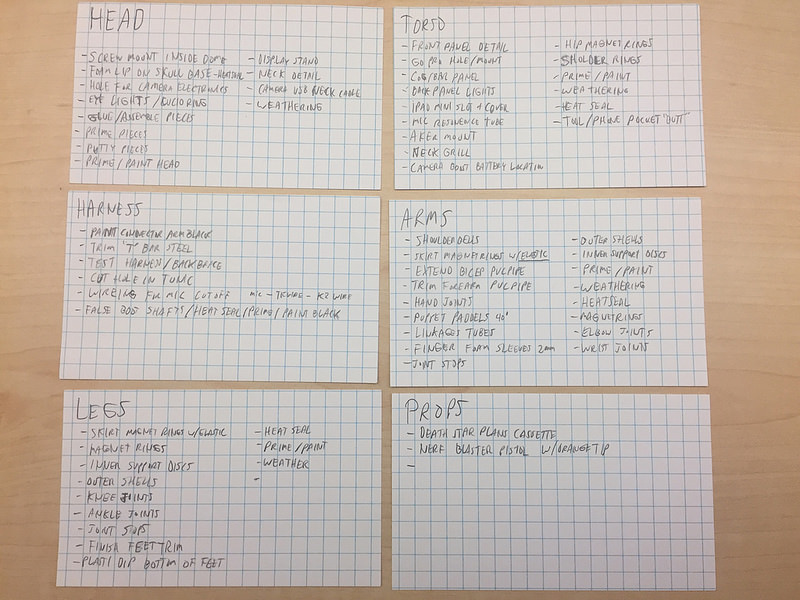 HEAD
- SCREW MOUNT INSIDE DOME
- FOAM LIP ON SKULL BASE - HEATSEAL
- HOLE FOR CAMERA ELECTRONICS
- EYE LIGHTS /
- GLUE/ASSEMBLE PIECES
- PRIME PIECES
- PUTTY PIECES
- PRIME/PAINT HEAD
- DISPLAY STAND
- NECK DETAIL
- CAMERA USB NECK CABLE
- WEATHERING
TORSO
- FRONT PANEL DETAIL
- GO PRO HOLE/MOUNT
- COG/BAL PANEL
- BACK PANEL LIGHTS
- IPAD MINI SLOT + COVER
- MIC RESONENCE TUBE
- AKER MOUNT
- NECK GRILL
- CAMERA BATTERY LOCATION
- HIP MAGNET RINGS
- SHOLDER RINGS
- PRIME/PAINT
- WEATHERING
- HEAT SEAL
- TOOL/PHONE POCKET "BUTT"
HARNESS
- PAINT CONNECTOR ARM BLACK
- TRIM 'T' BAR STEEL
- TEST HARNESS/BACKBRACE
- CUT HOLE IN TUNIC
- WIREING FOR MIC CUTOFF MIC - TKWIRE - K2 WIRE
- FALSE BOD SHAFTS/HEAT SEAL/PRIME/PAINT BLACK
ARMS
- SHOULDERDELLS
- SKIRT MAGNETRINGS W/ELASTIC
- EXTEND BICEP PVCPIPE
- TRIM FOREARM PVCPIPE
- HAND JOINTS
- PUPPET PADDELS 40°
- LINKAGES TUBES
- FINGER FOAM SLEEVES 2mm
- JOINT STOPS
- OUTER SHELLS
- INNER SUPPORT DISCS
- PRIME/PAINT
- WEATHERING
- HEATSEAL
- MAGNETRINGS
- ELBOW JOINTS
- WRIST JOINTS
LEGS
- SKIRT MAGNET RINGS W/ELASTIC
- MAGNET RINGS
- INNER SUPPORT DISCS
- OUTER SHELLS
- KNEE JOINTS
- ANKLE JOINTS
- JOINT STOPS
- FINISH FEET TRIM
- PLASTI DIP BOTTOM OF FEET
- HEAT SEAL
- PRIME/PAINT
- WEATHER
-
PROPS
- DEATH STAR PLANS CASSETTE
- NERF BLASTER PISTOL W/ORANGE TIP
-